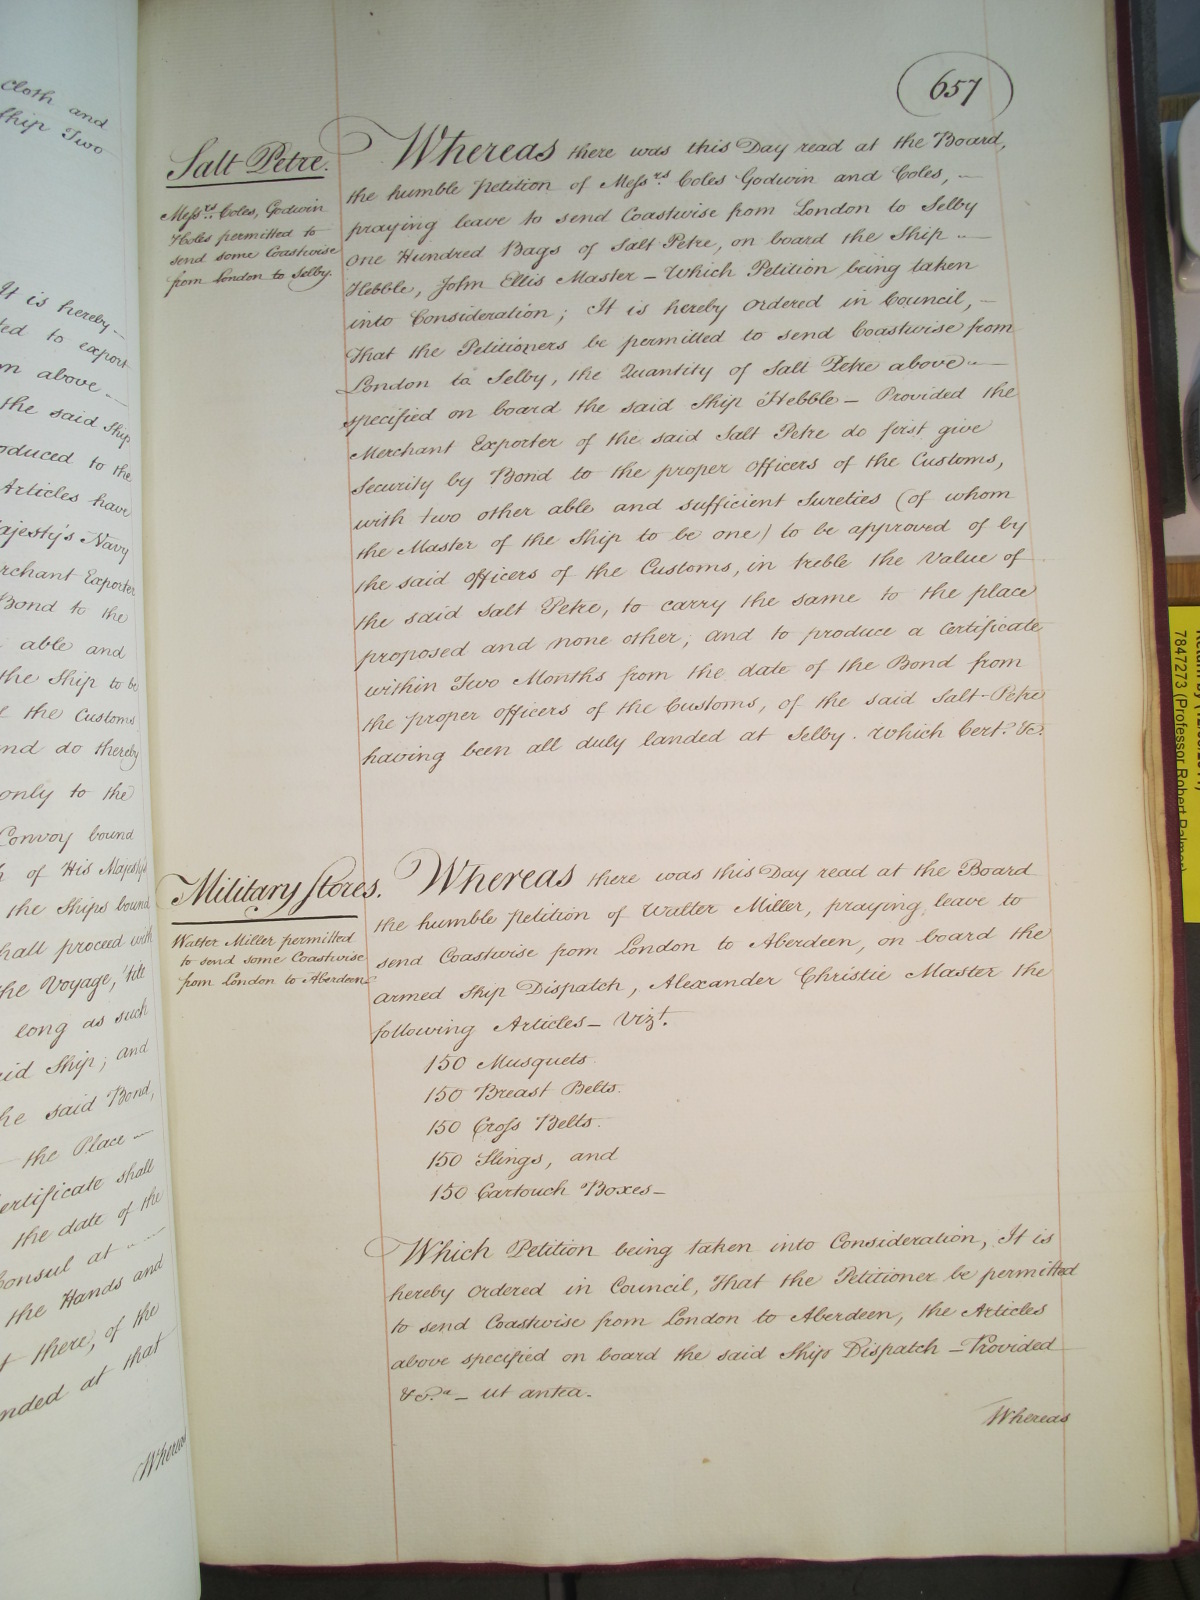 cloth and
Ship Two
It is hereby
to export
above
the said Ship
to the
Articles have
Majesty's Navy
Merchant Exporter
Bond to the
able and
the Ship to be
the Customs
and do thereby
only to the
Convoy bound
of His Majesty's
the Ships bound
shall proceed with
the Voyage, 'till
long as such
said Ship; and
the said Bond,
the Place
Certificate shall
the date of the
Consul at
the Hands and
there, of the
landed at that
Whereas
657
Salt Petre.
Messrs. Coles, Godwin
Coles permitted to
send some Coastwise
from London to Selby.
Whereas there was this Day read at the Board,
the humble Petition of Messrs Coles Godwin and Coles, —
praying leave to send Coastwise from London to Selby
One Hundred Bags of Salt Petre, on board the Ship —
Hebble, John Ellis Master — Which Petition being taken
into Consideration; It is hereby ordered in Council, —
That the Petitioners be permitted to send Coastwise from
London to Selby, the Quantity of Salt Petre above —
specified on board the said Ship Hebble — Provided the
Merchant Exporter of the said Salt Petre do first give
Security by Bond to the proper Officers of the Customs,
with two other able and sufficient Sureties (of whom
the Master of the Ship to be one) to be approved of by
the said Officers of the Customs, in treble the Value of
the said Salt Petre, to carry the same to the place
proposed and none other; and to produce a Certificate
within Two Months from the date of the Bond from
the proper Officers of the Customs, of the said Salt-Petre
having been all duly landed at Selby. Which Cert. &c.
Military Stores.
Walter Miller permitted
to send some Coastwise
from London to Aberdeen
Whereas there was this Day read at the Board
the humble Petition of Walter Miller, praying leave to
send Coastwise from London to Aberdeen, on board the
armed Ship Dispatch, Alexander Christie Master the
following Articles — Vizt.
150 Musquets.
150 Breast Belts.
150 Cross Belts.
150 Slings, and
150 Cartouch Boxes —
Which Petition being taken into Consideration, It is
hereby ordered in Council, That the Petitioner be permitted
to send Coastwise from London to Aberdeen, the Articles
above specified on board the said Ship Dispatch — Provided
&ca — ut antea.
Whereas
7847273 (Professor Robert Palmer)